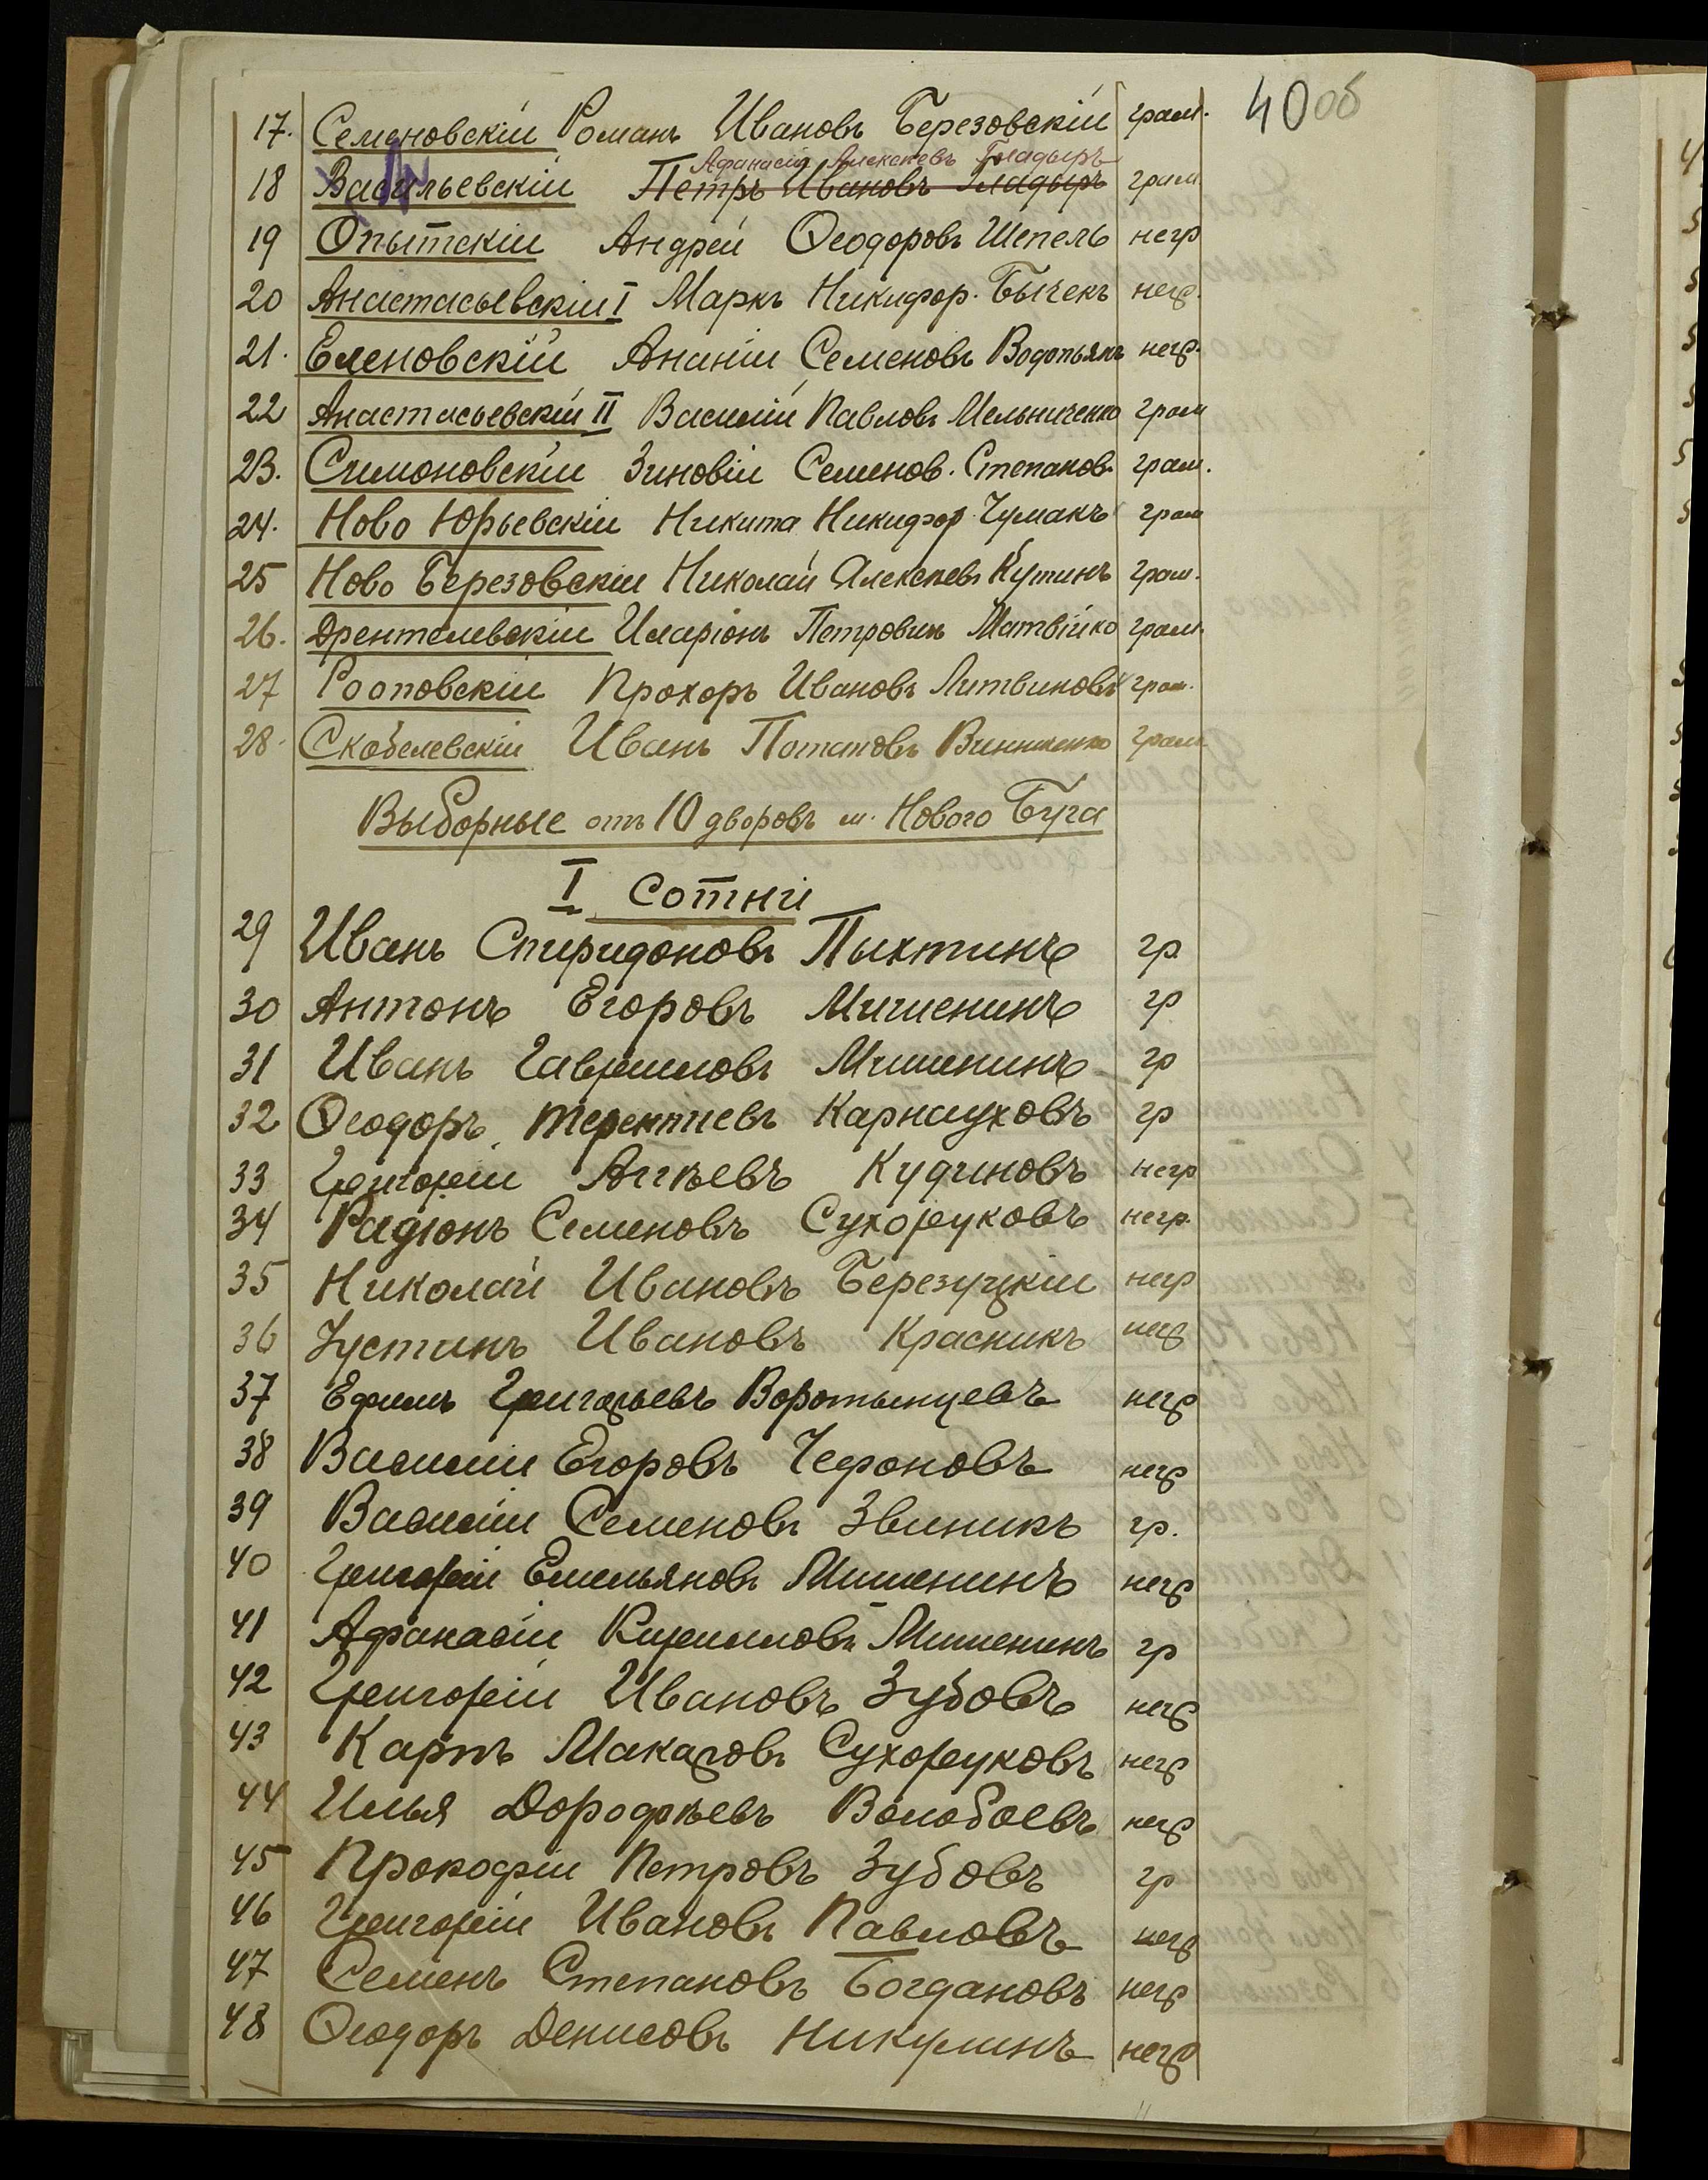 40 об
17. Семеновскій Романъ Ивановъ Березовскій грам.
Афанасій Алексѣевъ Гладыръ
18 Васильевскій Петръ Ивановъ Гладыръ грам
19 Опытскій Андрей Ѳеодоровъ Шепель негр
20 Анастасьевскій I Маркъ Никифор. Бычекъ негр.
21. Еленовскій Ананій Семеновъ Водопьянъ негр.
22 Анастасьевскій II Василій Павловъ Мельниченко грам
23. Симоновскій Зиновій Семенов. Степанов. грам.
24. Ново Юрьевскій Никита Никифор Чумакъ грам
25 Ново Березовскій Николай Алексѣевъ Кутинъ грам.
26. Дрентелевскій Иларіонъ Петровичъ Матвійко грам.
27 Рооповскій Прохоръ Ивановъ Литвиновъ грам.
28. Скобелевскій Иванъ Потаповъ Винниченко грам
Выборные отъ 10 дворовъ м. Нового Буга
I Сотни
29 Иванъ Спиридоновъ Пыхтинъ гр.
30 Антонъ Егоровъ Мишенинъ гр
31 Иванъ Гавриловъ Мишенинъ гр
32 Ѳеодоръ Терентіевъ Карнауховъ гр
33 Григорій Аникѣевъ Кудиновъ негр
34 Радіонъ Семеновъ Сухоруковъ негр.
35 Николай Ивановъ Березуцкій негр
36 Устинъ Ивановъ Красникъ негр
37 Ефимъ Григорьевъ Воротынцевъ негр
38 Василій Егоровъ Чефоновъ негр
39 Василій Семеновъ Звиникъ гр.
40 Григорій Емельяновъ Мишенинъ негр
41 Афанасій Кирилловъ Мишенинъ гр
42 Григорій Ивановъ Зубовъ негр
43 Карпъ Макаровъ Сухоруковъ негр
44 Илья Дорофѣевъ Волобоевъ негр
45 Прокофій Петровъ Зубовъ гр
46 Григорій Ивановъ Павловъ негр
47 Семенъ Степановъ Богдановъ негр
48 Ѳеодоръ Денисовъ Никулинъ негр